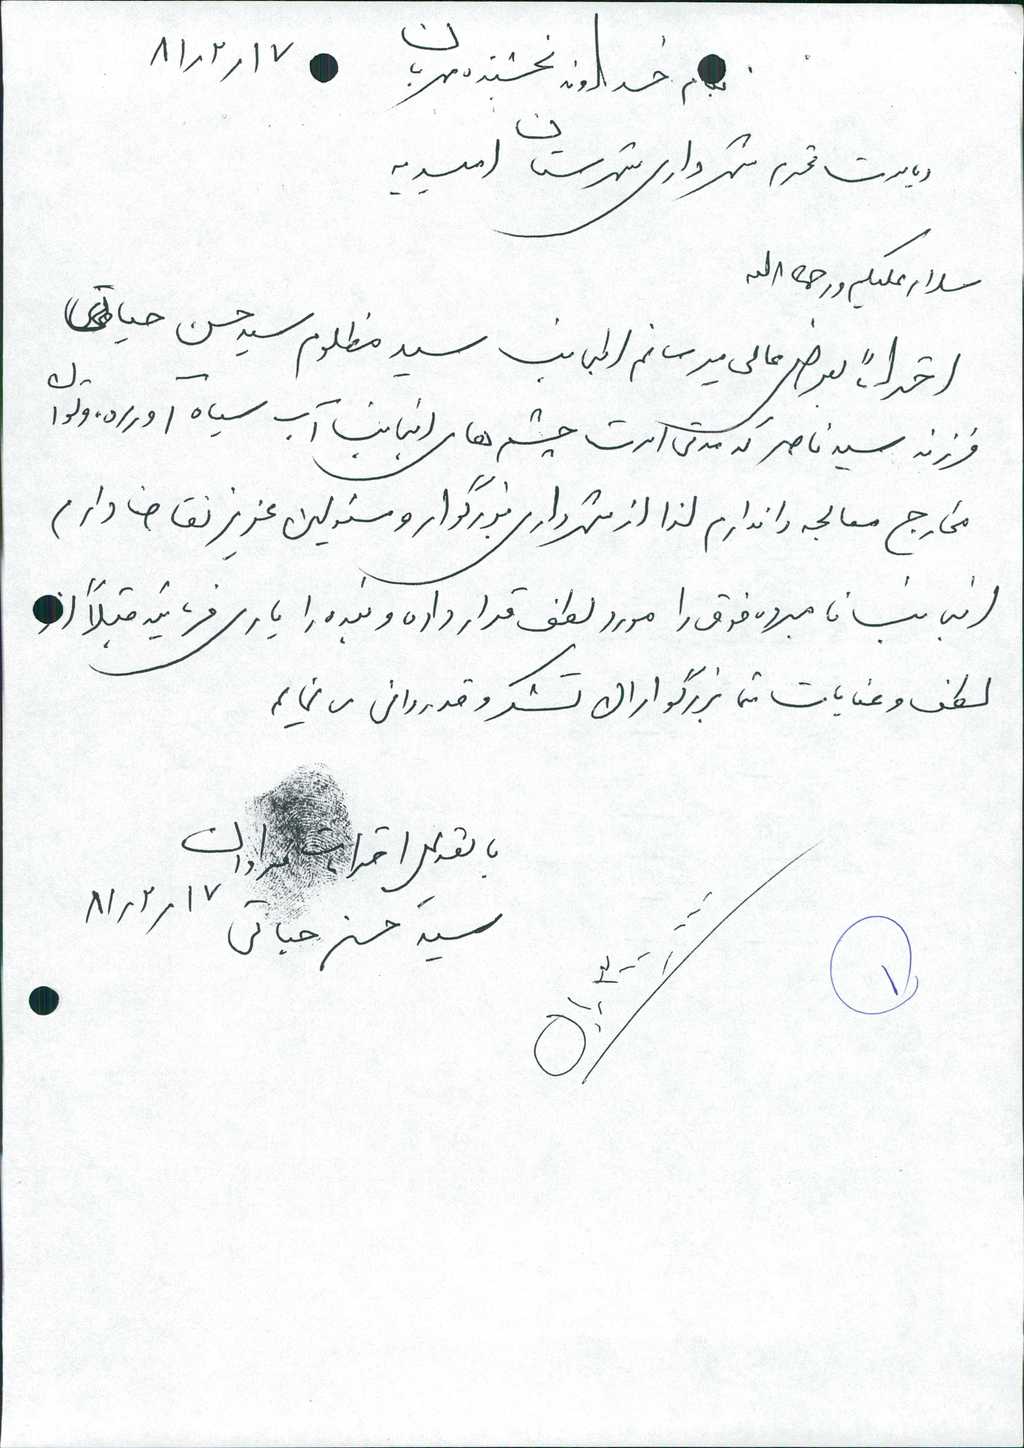 بنام خداوند بخشنده مهربان ۱۷ر۲ر۸۱
ریاست محترم شهرداری شهرستان امیدیه
سلام علیکم ورحمه الله
احتراماً بعرض عالی میرسانم اینجانب سید مظلوم سید حسن حیاتی
فرزند سید ناصر که مدتی است چشم های اینجانب آب سیاه آورده و توان
مخارج معالجه را ندارم لذا از شهرداری بزرگوار و مسئولین عزیز تقاضا دارم
اینجانب نامبرده فوق را مورد لطف قرار داده و بنده را یاری فرمائید قبلاً از
لطف و عنایات شما بزرگواران تشکر و قدردانی می نمایم
با تقدیم احترامات فراوان
سید حسن حیاتی ۱۷ر۲ر۸۱
۱